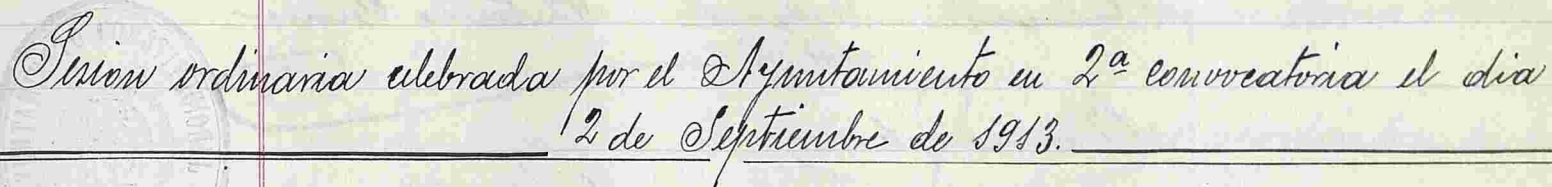 Sesion ordinaria celebrada por el Ayuntamiento en 2ª convocatoria el dia
2 de Septiembre de 1913.